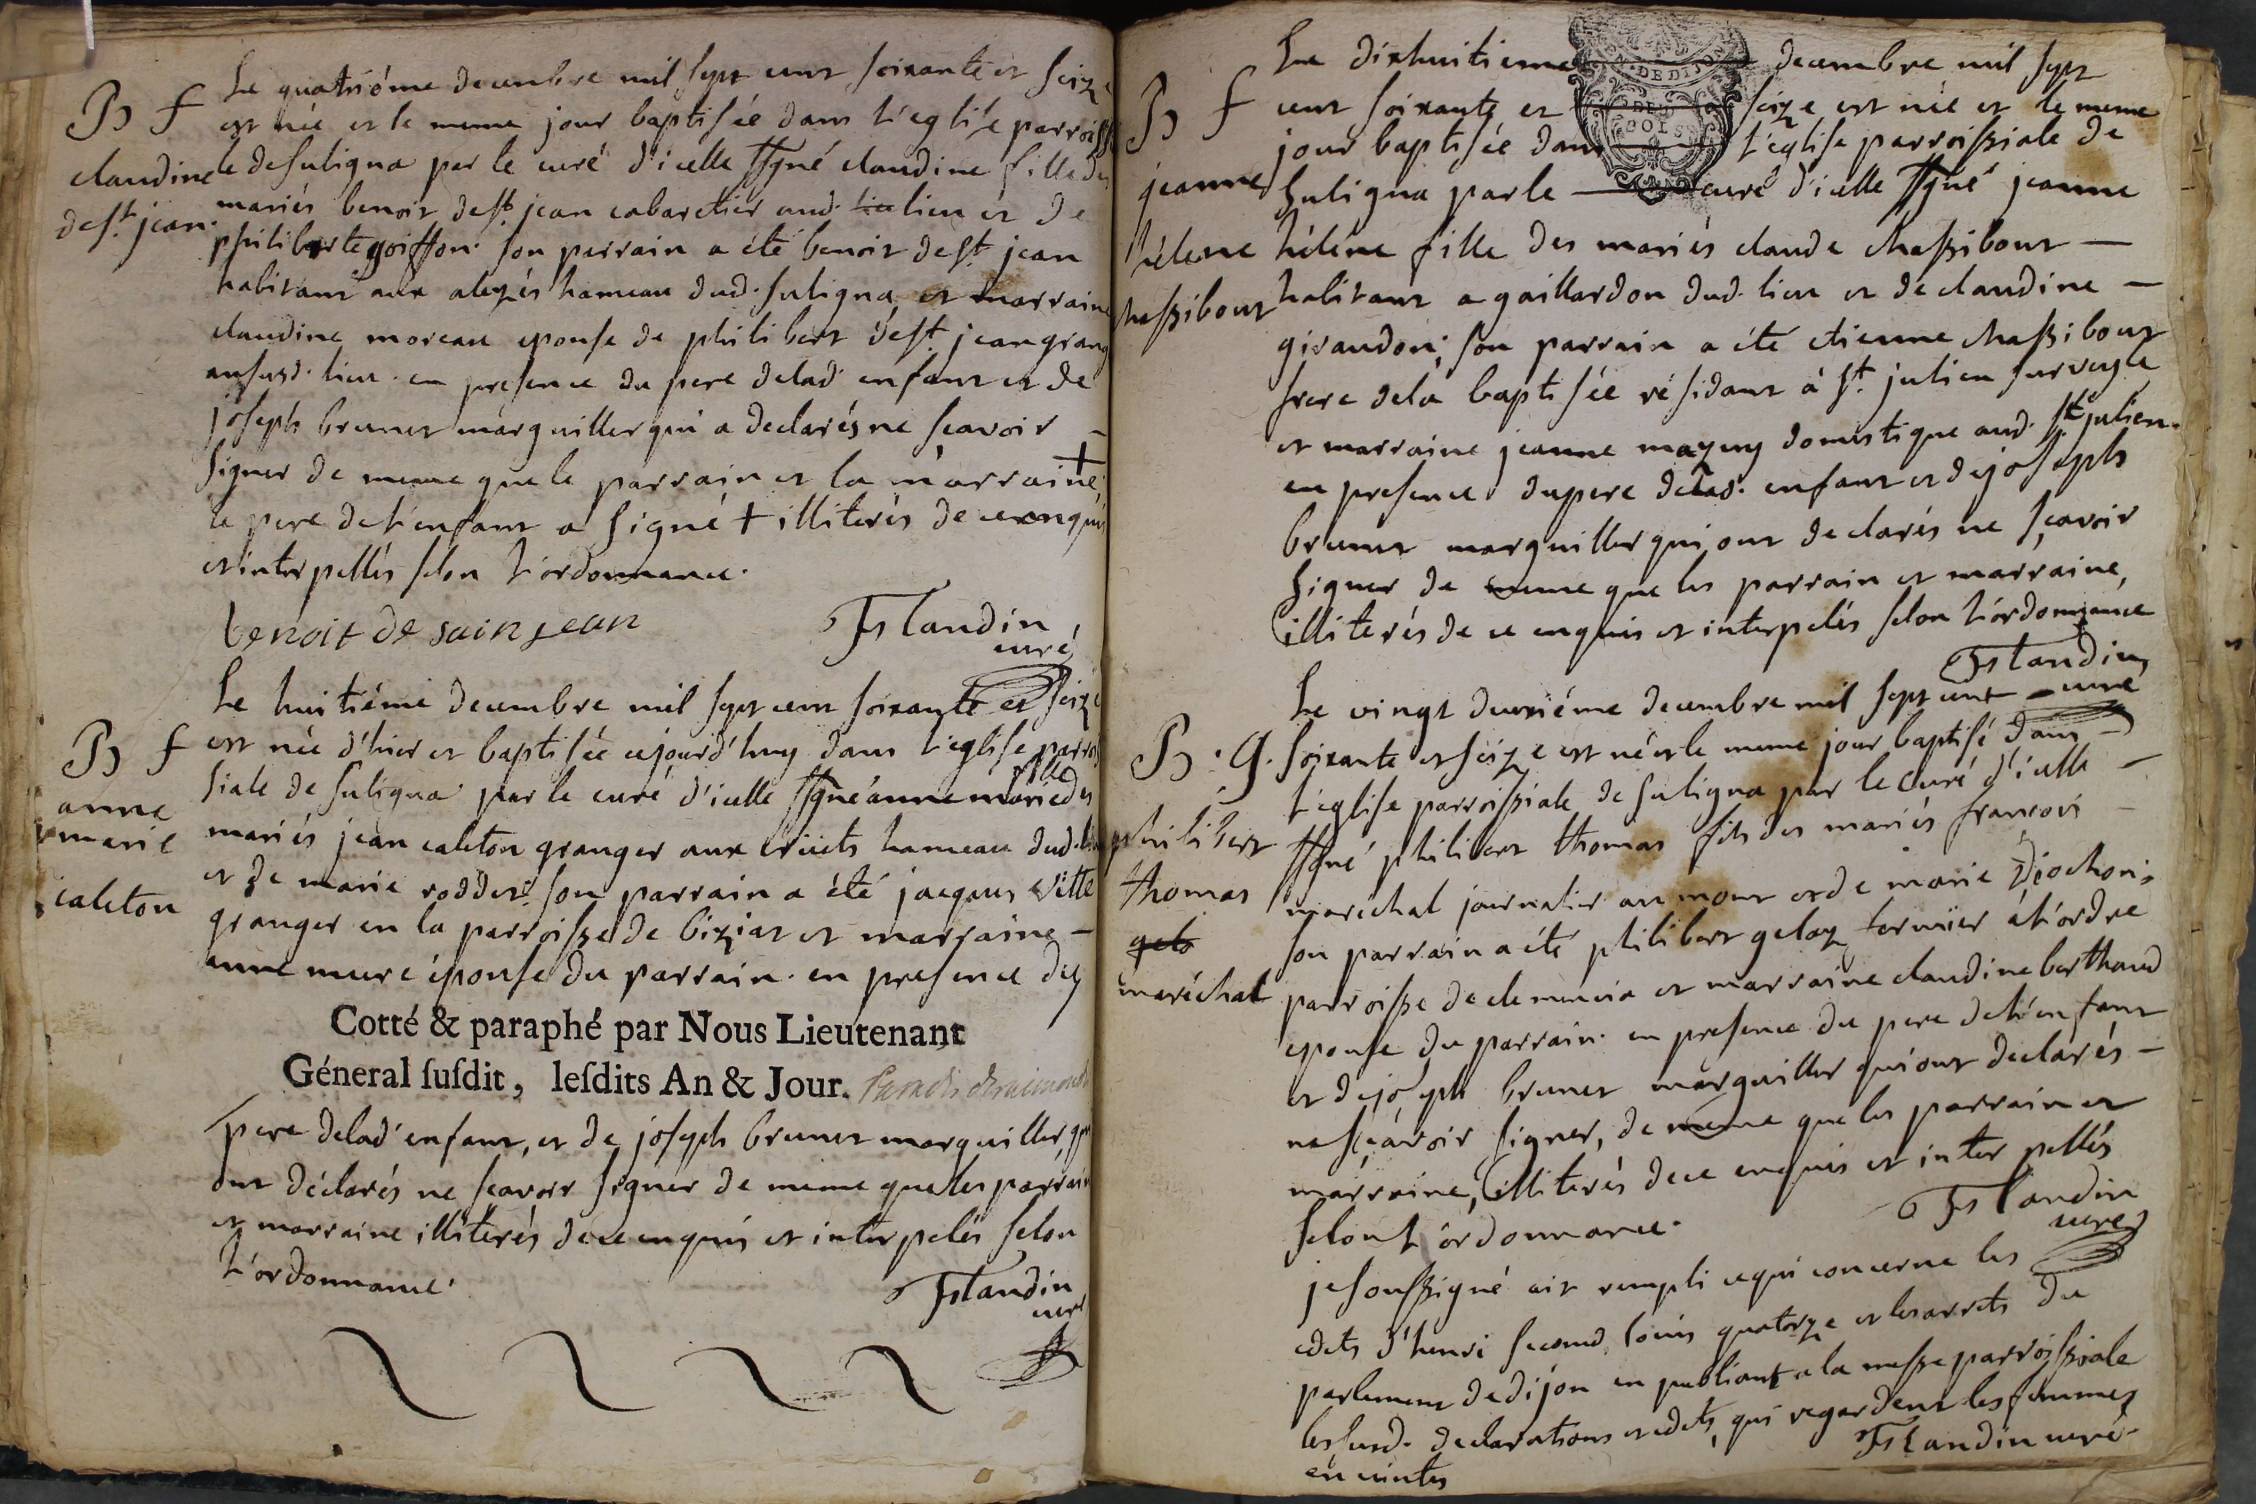 B f
claudine
de st. jean.
Le quatriéme decembre mil sept cent soixante et seize
est née et le meme jour baptisée dans l'eglise parroissia
le de suligna par le curé d'icelle ssgné claudine fille des
mariés benoit de st. jean cabaretier aud. lieu et de
philiberte goiffon. son parrain a été benoit de st. jean
habitant aux hameau dud. suligna et marraine
claudine moreau epouse de philibert de st. jean grang
au susd. lieu. en presence du pere de lad. enfant et de
joseph brunet marguillier qui a declarés ne scavoir
signer de meme que le parrain et la marraine, +
le pere de l'enfant a signé + illiterés de ce enquis
et interpellés selon l'ordonnance.
benoit de sain jean
Islandin
curé
B f
anne
marie
caleton
Le huitiéme decembre mil sept cent soixante et seize
est née d'hier et baptisée cejourd'huy dans l'eglise parrois
siale de suligna par le curé d'icelle ssgné anne marie fille des
mariés jean caleton granger aux hameau dud. lieu
et de marie roddet. son parrain a été jacques vitte
granger en la parroisse de biziat et marraine
anne mure épouse du parrain. en presence du
Cotté & paraphé par Nous Lieutenant
Géneral susdit, lesdits An & Jour.
pere de lad. enfant, et de joseph brunet marguillier, qui
ont déclarés ne scavoir signer de meme que les parrain
et marraine illiterés de ce enquis et interpelés selon
l'ordonnance.
Islandin
curé
B f
jeanne
hélene
chassibout
Le dixhuitieme decembre mil sept
cent soixante et seize est née et le meme
jour baptisée dans l'eglise parroissiale de
suligna par le curé d'icelle ssgné jeanne
hélène fille des mariés claude chassibout
habitant a gaillardon dud. lieu et de claudine
giraudon; son parrain a été etienne chassibout
frere de la baptisée résidant à st. julien sur veyle
et marraine jeanne domestique aud. st. julien.
en presence du pere de lad. enfant et de joseph
brunet marguillier qui ont declarés ne scavoir
signer de meme que les parrain et marraine,
illiterés de ce enquis et interpelés selon l'ordonnance
Islandin
curé
B. G.
philibert
thomas
maréchal
Le vingt deuxiéme decembre mil sept cent
soixante et seize est né et le meme jour baptisé dans
l'eglise parroissiale de suligna par le curé d'icelle
ssgné philibert thomas fils des mariés francois
maréchal journalier au mont et de marie diochon;
son parrain a été philibert gelay fermier à l'ordre
parroisse de clemencia et marraine claudine berthaud
epouse du parrain. en presence du pere de l'enfant
et de joseph brunet marguillier qui ont declarés
ne scavoir signer, de meme que les parrain et
marraine, illiterés de ce enquis et interpellés
selon l'ordonnance.
Islandin
curé
je soussigné ait rempli ce qui concerne les
edets d'henri second, louis quatorze et les arrets du
parlement de dijon en publiant a la messe parroissiale
les susd. declarations et edets, qui regardent les femmes
enceintes
Islandin curé